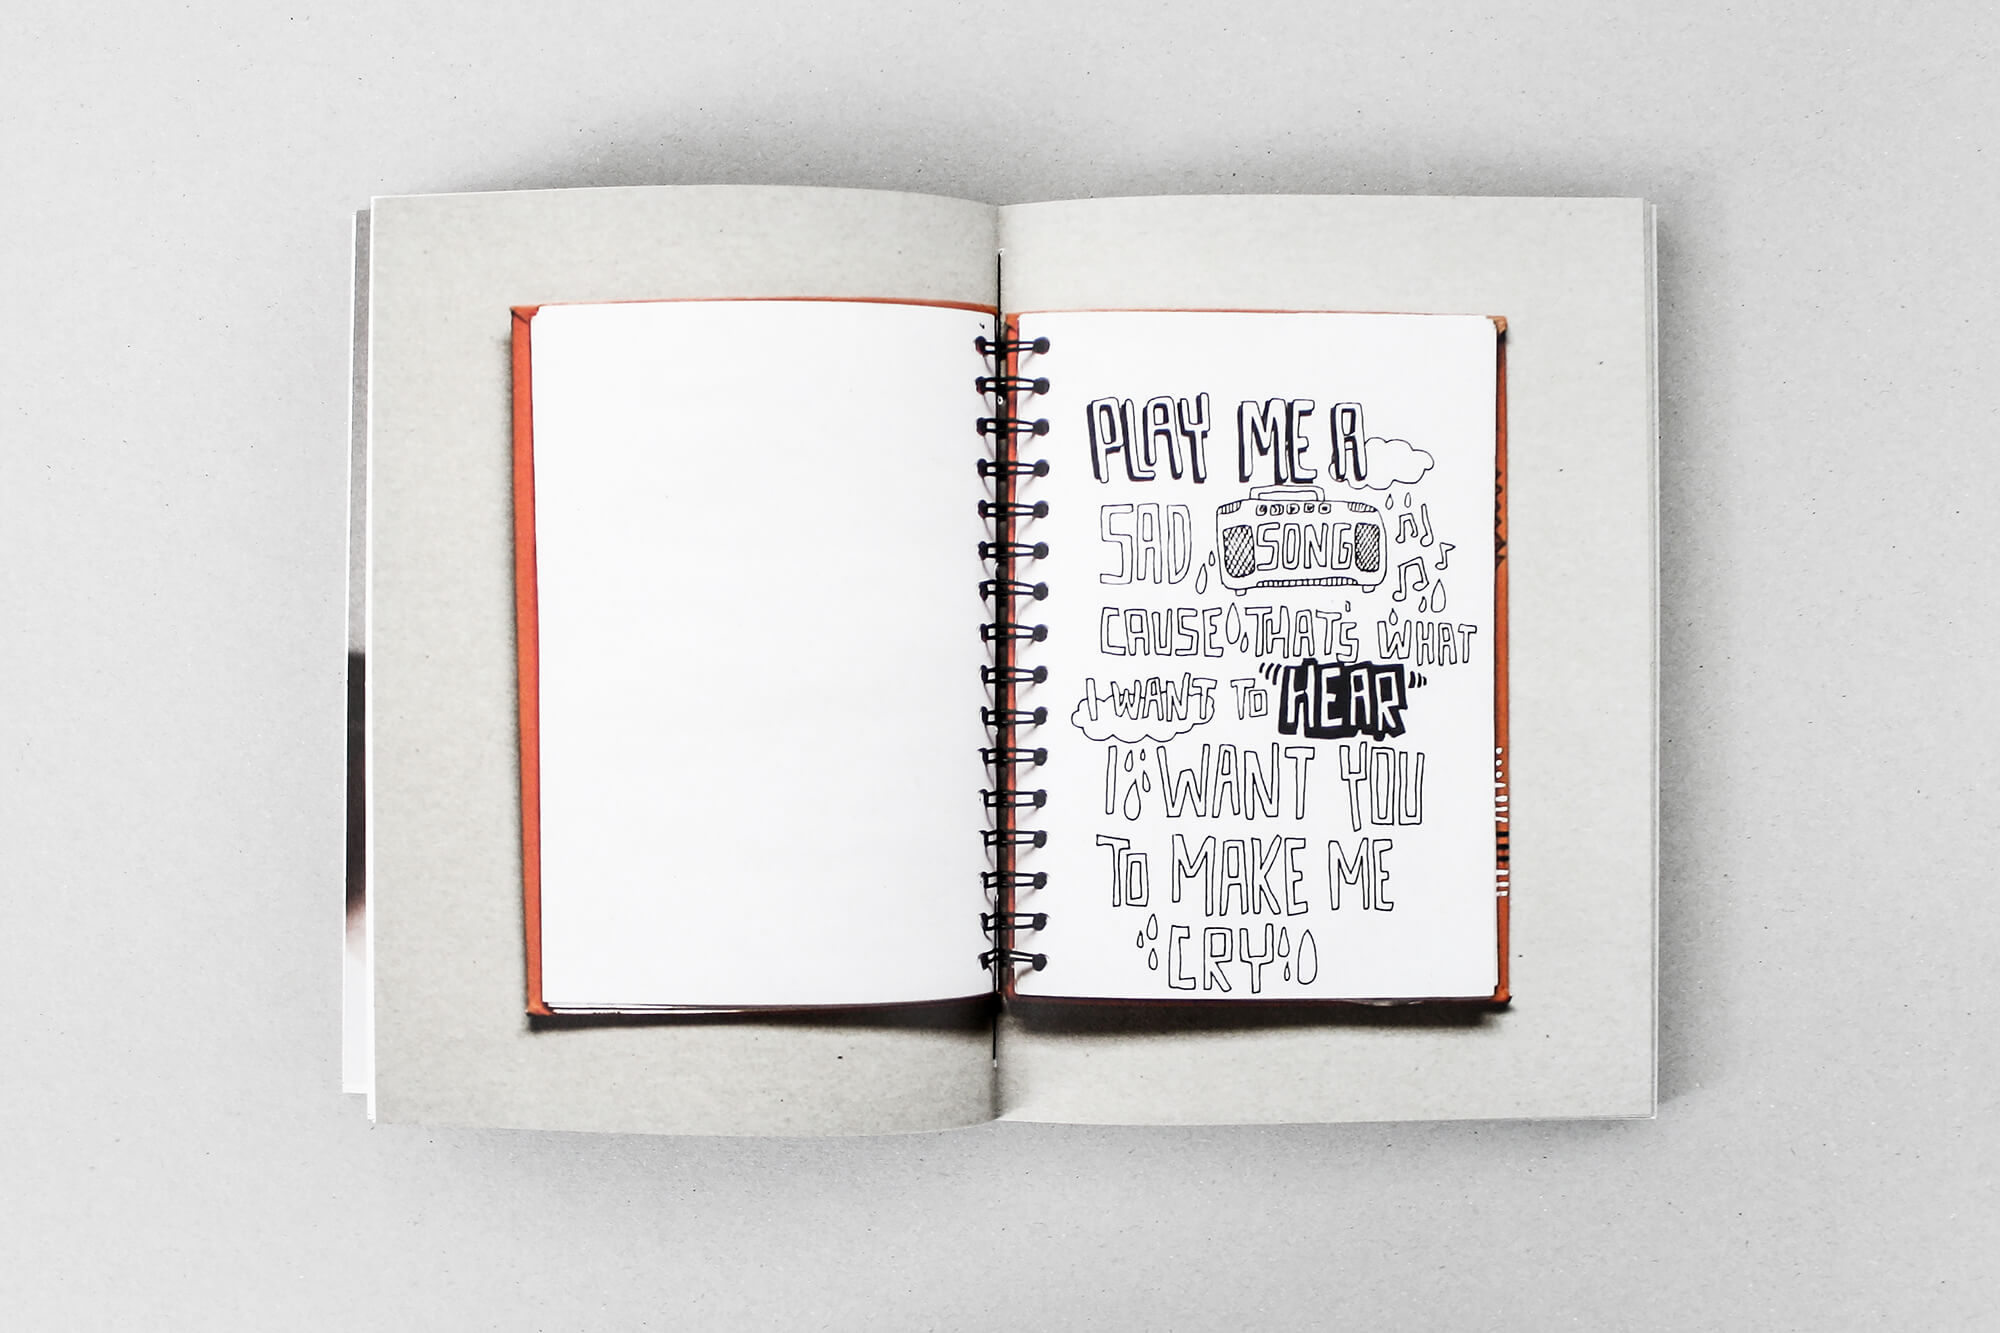 PLAY ME A
SAD SONG
CAUSE THAT'S WHAT
I WANT TO "HEAR"
I WANT YOU
TO MAKE ME
CRY